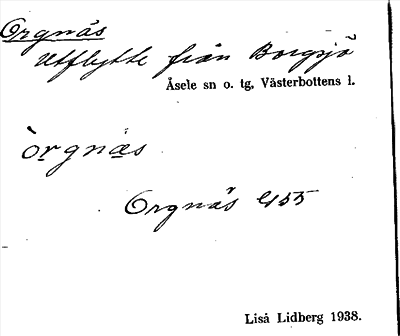 Orgnäs
Utflytte från Borgsjö
Åsele sn o. tg, Västerbottens l.
òrgnäs
Orgnäs 1455
Lisá Lidberg 1938.